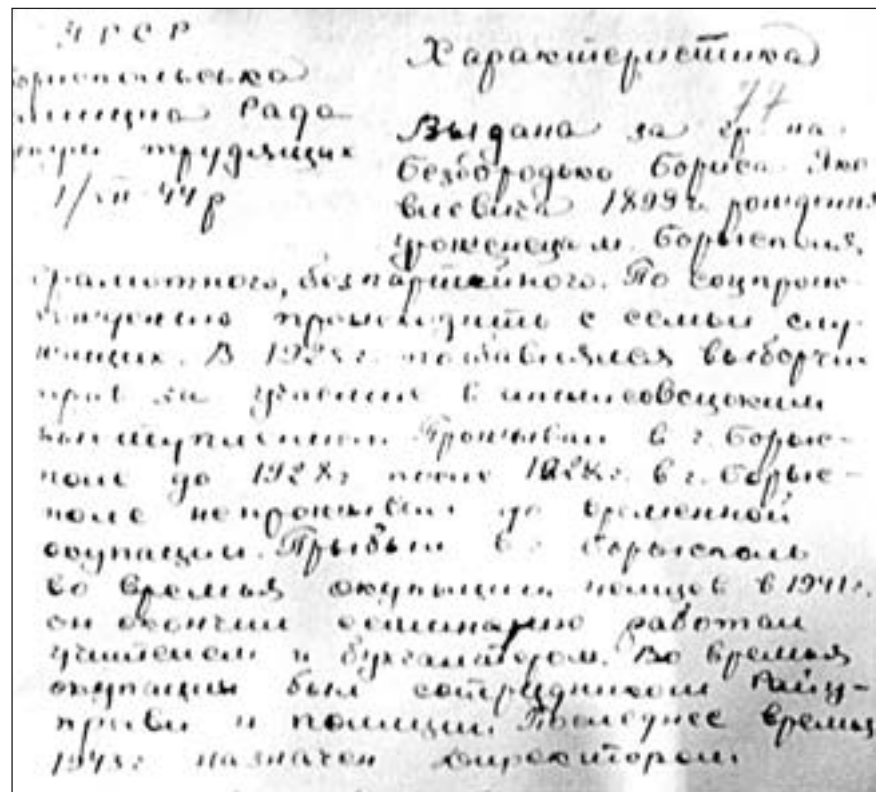 УРСР
Бориспольська
Рада
трудящих
1/VII-44р
Характеристика
77
Выдана за гр. на
Безбородько Бориса Яко
влевича 1899 г. рождения
уроженец м. Борысполя
грамотного, безпартейного. По соцпроис-
происходить с семьи слу-
жащих. В 192 г. выборчих
прав за участие в
Проживал в г. Борыс-
поле до 192 г после 192 г. в г. Борыс-
поле непроживал до временной
окупации. Прыбыл в г Борысполь
во времья окупацыи немцев в 1941г.
он окончил семинарию работал
учителем и бухгалтером. Во времья
окупации был сотрудником Райу-
правы и полиции. Последнее времья
1943г назначен директором.